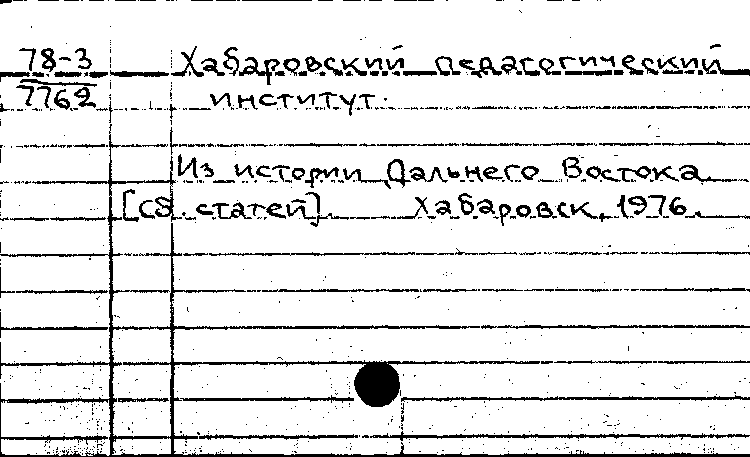 78-3 Хабаровский педагогический
7762 институт.
Из истории Дальнего Востока.
[сб. статей]. Хабаровск, 1976.